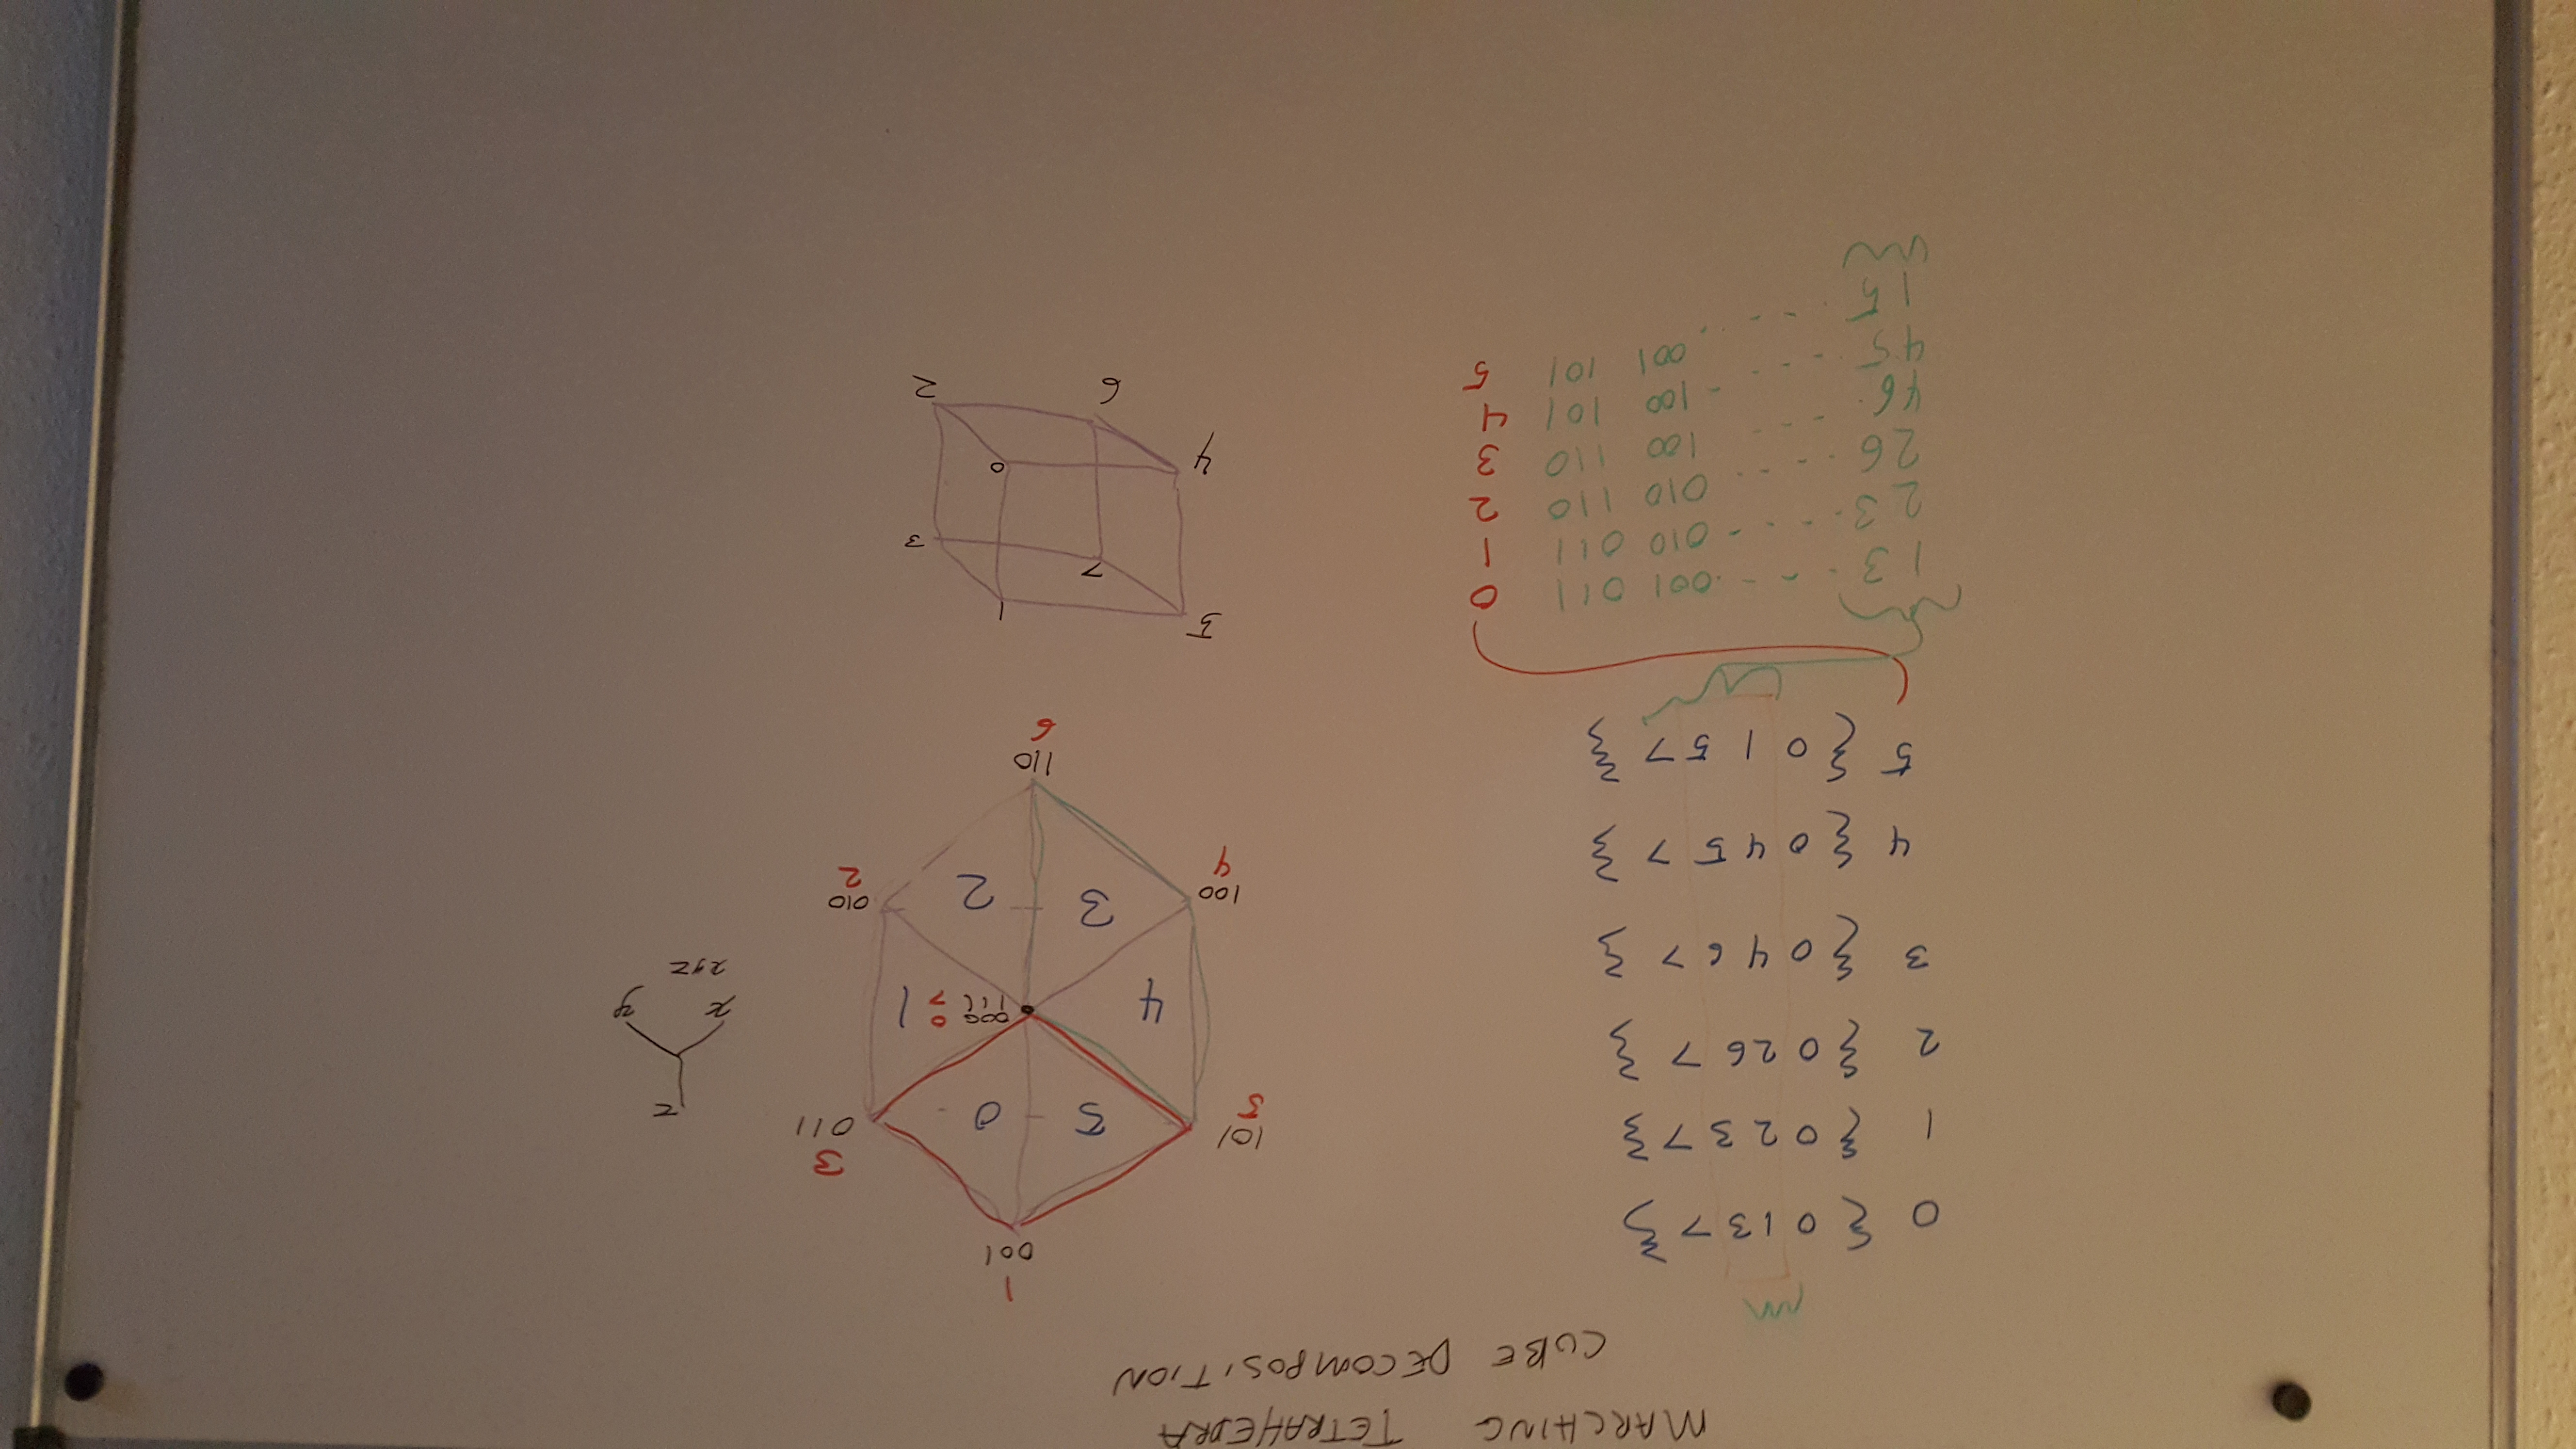 MARCHING TETRAHEDRA
CUBE DECOMPOSITION
0 { 0 1 3 7 }
1 { 0 2 3 7 }
2 { 0 2 6 7 }
3 { 0 4 6 7 }
4 { 0 4 5 7 }
5 { 0 1 5 7 }
1 3 - - - . 001 011 0
2 3 - - - - 010 011 1
2 6 - - - - 010 110 2
4 6 - - - 100 110 3
4 5 - - - - 100 101 4
1 5 - - - . 001 101 5
1
001
101
5
3
011
5 0
4
000 0
111 7
1
3 2
100
4
010
2
110
6
z
x y
xyz
5 1
7 3
4 0
6 2